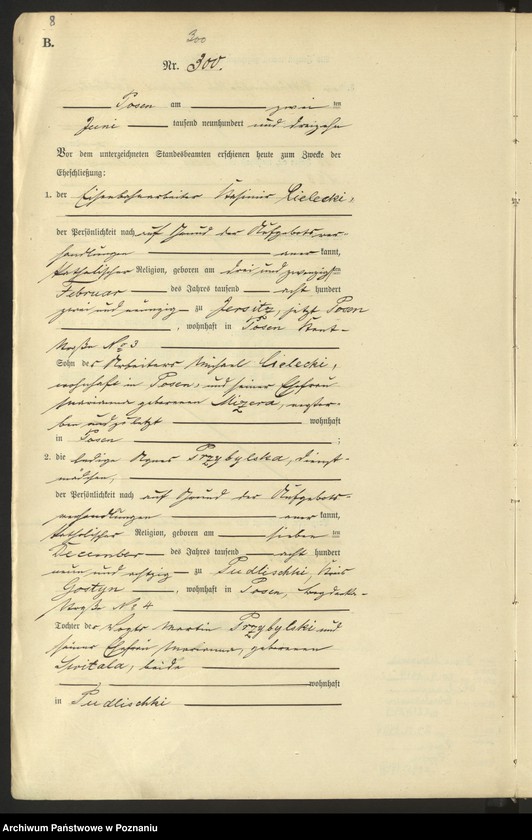 8
300
B.
Nr. 300.
Posen am zwei ten
Juni tausend neunhundert und dreizehn
Vor dem unterzeichneten Standesbeamten erschienen heute zum Zwecke der
Eheschließung:
1. der Eisenbahnarbeiter Kasimir Cielecki,
der Persönlichkeit nach auf Grund der Aufgebotsver-
handlungen aner kannt,
katholischer Religion, geboren am drei und zwanzigsten
Februar des Jahres tausend acht hundert
zwei und neunzig zu Jersitz, jetzt Posen
, wohnhaft in Posen
straße No 3
Sohn des Arbeiters Michael Cielecki,
wohnhaft in Posen, und seiner Ehefrau
Marianna geborenen Mizera, verstor-
ben und zuletzt wohnhaft
in Posen ;
2. die ledige Agnes Przybylska, Dienst-
mädchen,
der Persönlichkeit nach auf Grund der Aufgebots-
verhandlungen aner kannt,
katholischer Religion, geboren am sieben ten
December des Jahres tausend acht hundert
neun und achtzig zu Pudlischki, Kreis
Gostyn , wohnhaft in Posen,
straße No 4
Tochter des Vogts Martin Przybylski und
seiner Ehefrau Marianna, geborenen
beide
wohnhaft
in Pudlischki
Archiwum Państwowe w Poznaniu